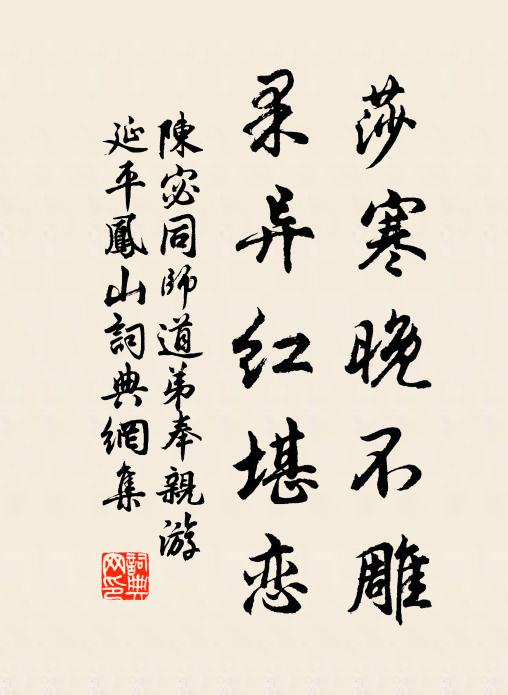 莎寒晚不雕
果异红堪恋
陳宓同師道弟奉親游
延平鳳山詞典網集
詞典
网印